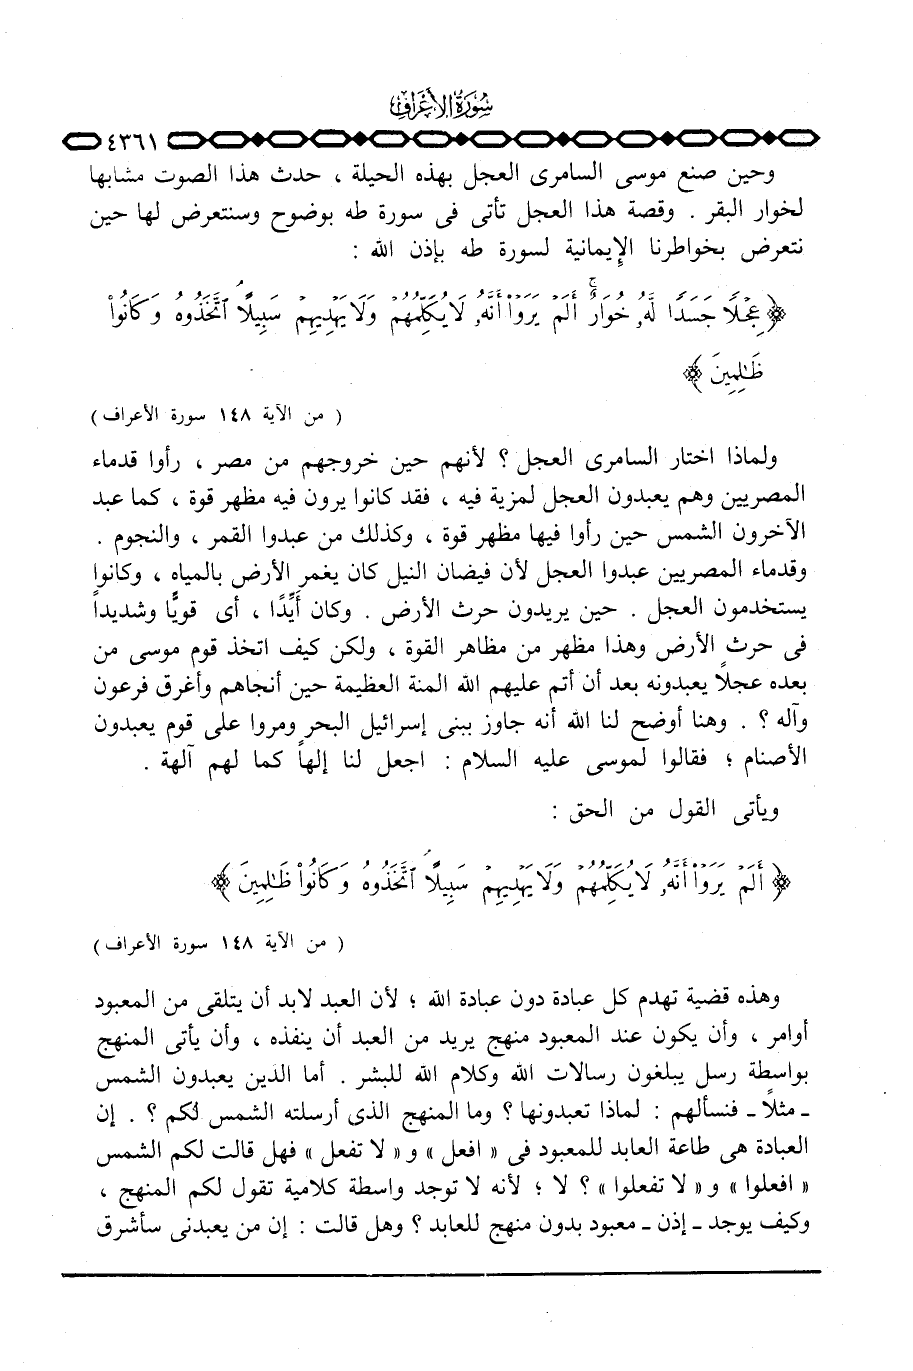 سُورَةُ الأَعْرَافِ
٤٣٦١
وحين صنع موسى السامرى العجل بهذه الحيلة ، حدث هذا الصوت مشابها
لخوار البقر . وقصة هذا العجل تأتى فى سورة طه بوضوح وسنتعرض لها حين
نتعرض بخواطرنا الإيمانية لسورة طه بإذن الله :
﴿ عِجْلًا جَسَدًا لَّهُۥ خُوَارٌ ۚ أَلَمْ يَرَوْا۟ أَنَّهُۥ لَا يُكَلِّمُهُمْ وَلَا يَهْدِيهِمْ سَبِيلًا ۘ ٱتَّخَذُوهُ وَكَانُوا۟
ظَـٰلِمِينَ ﴾
( من الآية ١٤٨ سورة الأعراف )
ولماذا اختار السامرى العجل ؟ لأنهم حين خروجهم من مصر ، رأوا قدماء
المصريين وهم يعبدون العجل لمزية فيه ، فقد كانوا يرون فيه مظهر قوة ، كما عبد
الآخرون الشمس حين رأوا فيها مظهر قوة ، وكذلك من عبدوا القمر ، والنجوم .
وقدماء المصريين عبدوا العجل لأن فيضان النيل كان يغمر الأرض بالمياه ، وكانوا
يستخدمون العجل . حين يريدون حرث الأرض . وكان أَيِّدًا ، أى قويًّا وشديداً
فى حرث الأرض وهذا مظهر من مظاهر القوة ، ولكن كيف اتخذ قوم موسى من
بعده عجلاً يعبدونه بعد أن أتم عليهم الله المنة العظيمة حين أنجاهم وأغرق فرعون
وآله ؟ . وهنا أوضح لنا الله أنه جاوز ببنى إسرائيل البحر ومروا على قوم يعبدون
الأصنام ؛ فقالوا لموسى عليه السلام : اجعل لنا إلهاً كما لهم آلهة .
ويأتى القول من الحق :
﴿ أَلَمْ يَرَوْا۟ أَنَّهُۥ لَا يُكَلِّمُهُمْ وَلَا يَهْدِيهِمْ سَبِيلًا ۘ ٱتَّخَذُوهُ وَكَانُوا۟ ظَـٰلِمِينَ ﴾
( من الآية ١٤٨ سورة الأعراف )
وهذه قضية تهدم كل عبادة دون عبادة الله ؛ لأن العبد لابد أن يتلقى من المعبود
أوامر ، وأن يكون عند المعبود منهج يريد من العبد أن ينفذه ، وأن يأتى المنهج
بواسطة رسل يبلغون رسالات الله وكلام الله للبشر . أما الذين يعبدون الشمس
ـ مثلاً ـ فنسألهم : لماذا تعبدونها ؟ وما المنهج الذى أرسلته الشمس لكم ؟ . إن
العبادة هى طاعة العابد للمعبود فى « افعل » و « لا تفعل » فهل قالت لكم الشمس
« افعلوا » و « لا تفعلوا » ؟ لا ؛ لأنه لا توجد واسطة كلامية تقول لكم المنهج ،
وكيف يوجد ـ إذن ـ معبود بدون منهج للعابد ؟ وهل قالت : إن من يعبدنى سأشرق